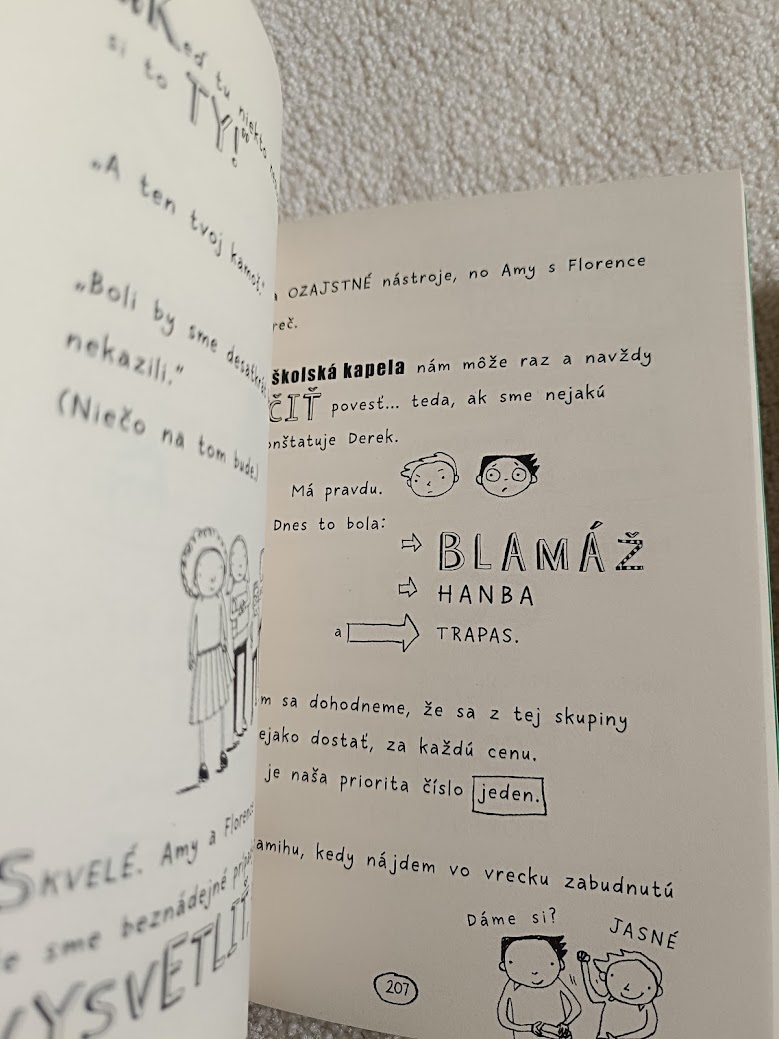 tu niekto
si to TY!"
"A ten tvoj kamoš."
"Boli by sme
nekazili."
(Niečo na tom bude.)
SKVELÉ. Amy a
sme beznádejné
VYSVETLIŤ,
OZAJSTNÉ nástroje, no Amy s Florence
reč.
školská kapela nám môže raz a navždy
ČIŤ povesť... teda, ak sme nejakú
Derek.
Má pravdu.
Dnes to bola:
BLAMÁŽ
HANBA
a TRAPAS.
m sa dohodneme, že sa z tej skupiny
ejako dostať, za každú cenu.
je naša priorita číslo jeden.
kedy nájdem vo vrecku zabudnutú
Dáme si? JASNÉ
207